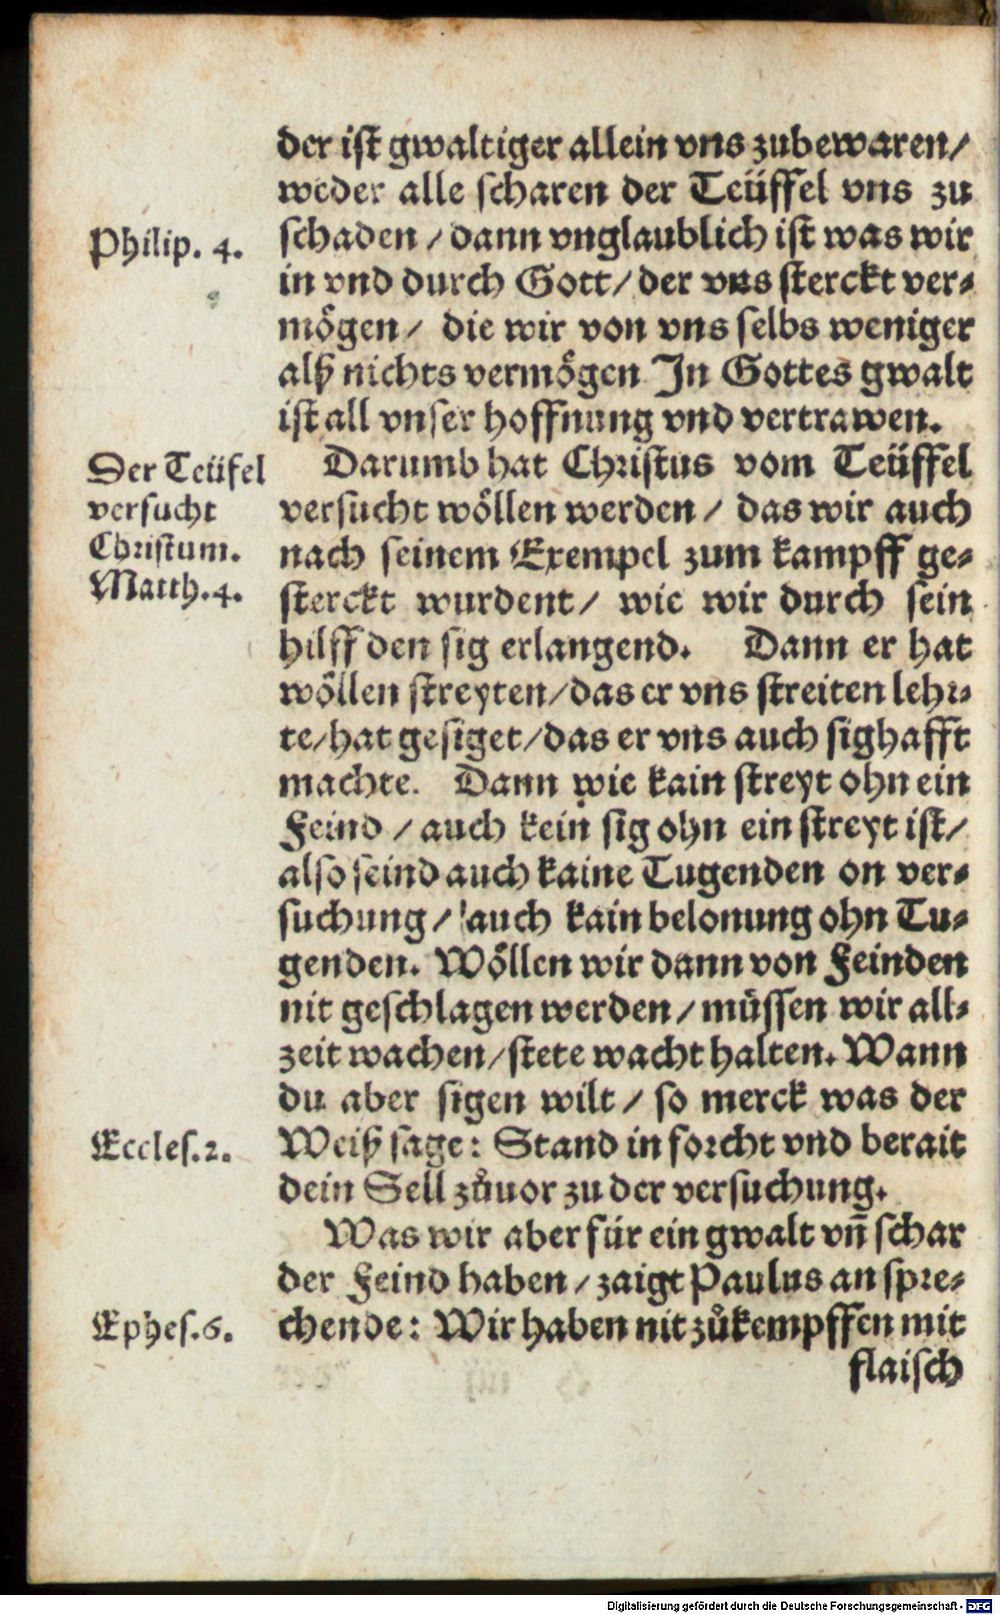 der ist gwaltiger allein vns zubewaren/
weder alle scharen der Teüffel vns zu
Philip. 4.
schaden / dann vnglaublich ist was wir
in vnd durch Gott/ der vns sterckt ver⸗
mögen/ die wir von vns selbs weniger
alß nichts vermögen In Gottes gwalt
ist all vnser hoffnung vnd vertrawen.
Der Teüfel
versucht
Christum.
Matth.4.
Darumb hat Christus vom Teüffel
versucht wöllen werden / das wir auch
nach seinem Exempel zum kampff ge⸗
sterckt wurdent/ wie wir durch sein
hilff den sig erlangend. Dann er hat
wöllen streyten/das er vns streiten lehr⸗
te/hat gesiget/das er vns auch sighafft
machte. Dann wie kain streyt ohn ein
Feind / auch kein sig ohn ein streyt ist/
also seind auch kaine Tugenden on ver⸗
suchung/ auch kain belonung ohn Tu⸗
genden. Wöllen wir dann von Feinden
nit geschlagen werden/müssen wir all⸗
zeit wachen/stete wacht halten. Wann
du aber sigen wilt / so merck was der
Eccles.2.
Weiß sage: Stand in forcht vnd berait
dein Sell zůuor zu der versuchung.
Was wir aber für ein gwalt vn̄ schar
der Feind haben/zaigt Paulus an spre⸗
Ephes.6.
chende: Wir haben nit zůkempffen mit
flaisch
Digitalisierung gefördert durch die Deutsche Forschungsgemeinschaft - DFG